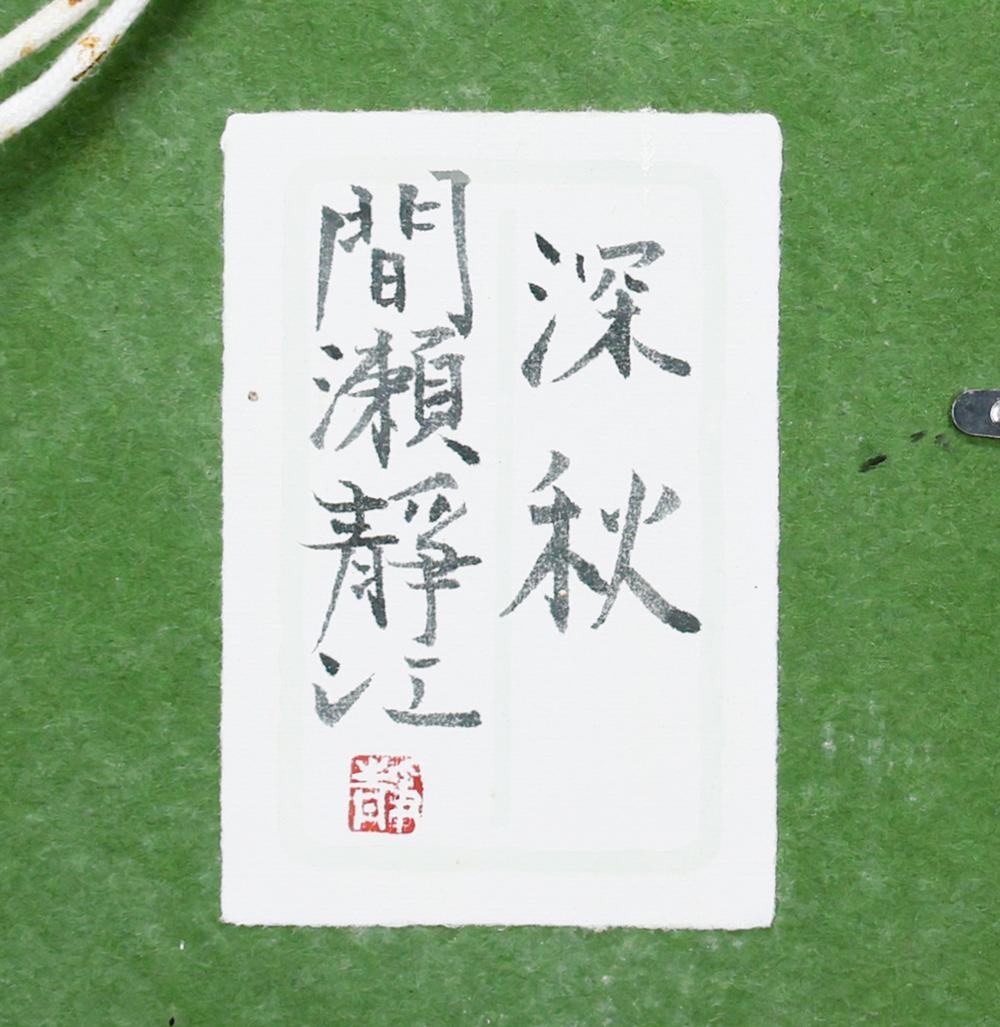 深秋
間瀬靜江
靜